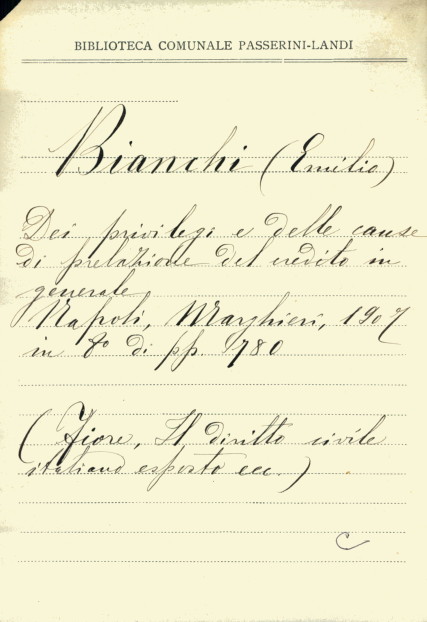 BIBLIOTECA COMUNALE PASSERINI-LANDI
Bianchi (Emilio)
Dei privilegi e delle cause
di prelazione del credito in
generale
Napoli, Marghieri, 1907
in 8° di pp. 780
(Fiore, Il diritto civile
italiano esposto ecc.)
C